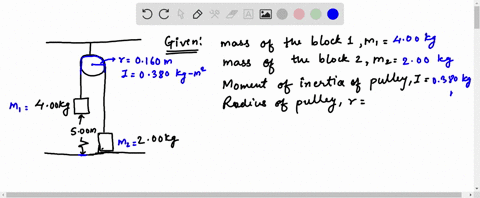 Given: mass of the block 1, m₁ = 4.00 kg
mass of the block 2, m₂ = 2.00 kg
Moment of inertia of pulley, I = 0.380 kg
Radius of pulley, r =
r = 0.160 m
I = 0.380 kg-m²
m₁ = 4.00kg
5.00m
m₂ = 2.00kg